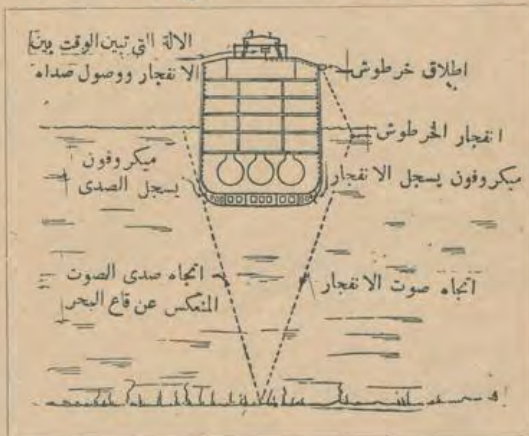 الالة التي تبين الوقت بين
الانفجار ووصول صداه
اطلاق خرطوش
انفجار الخرطوش
ميكروفون
يسجل الصدى
ميكروفون يسجل الانفجار
اتجاه صدى الصوت
المنعكس عن قاع البحر
اتجاه صوت الانفجار